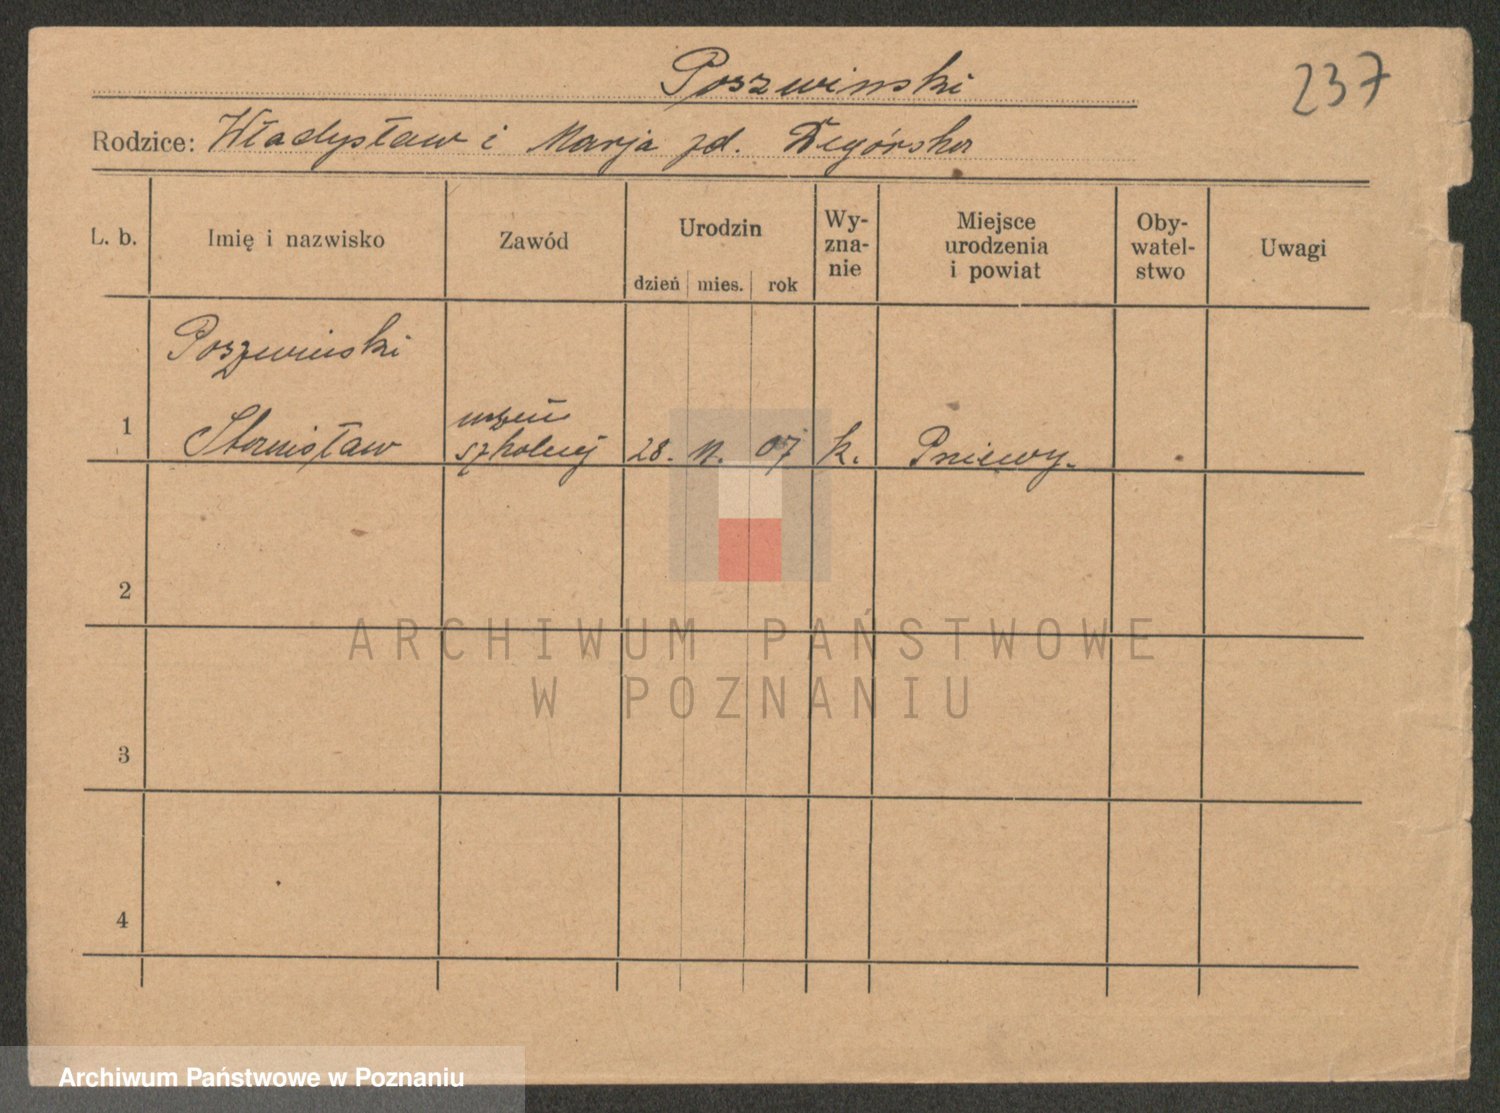 Poszwinski
237
Rodzice: Władysław i Marja zd. Degórska
L. b. Imię i nazwisko Zawód Urodzin Wy-zna-nie Miejsce urodzenia i powiat Oby-watel-stwo Uwagi
dzień mies. rok
Poszwinski
1 Stanisław uczeń szkolnej 28. 07 k. Pniewy.
2
3
4
ARCHIWUM PAŃSTWOWE
W POZNANIU
Archiwum Państwowe w Poznaniu